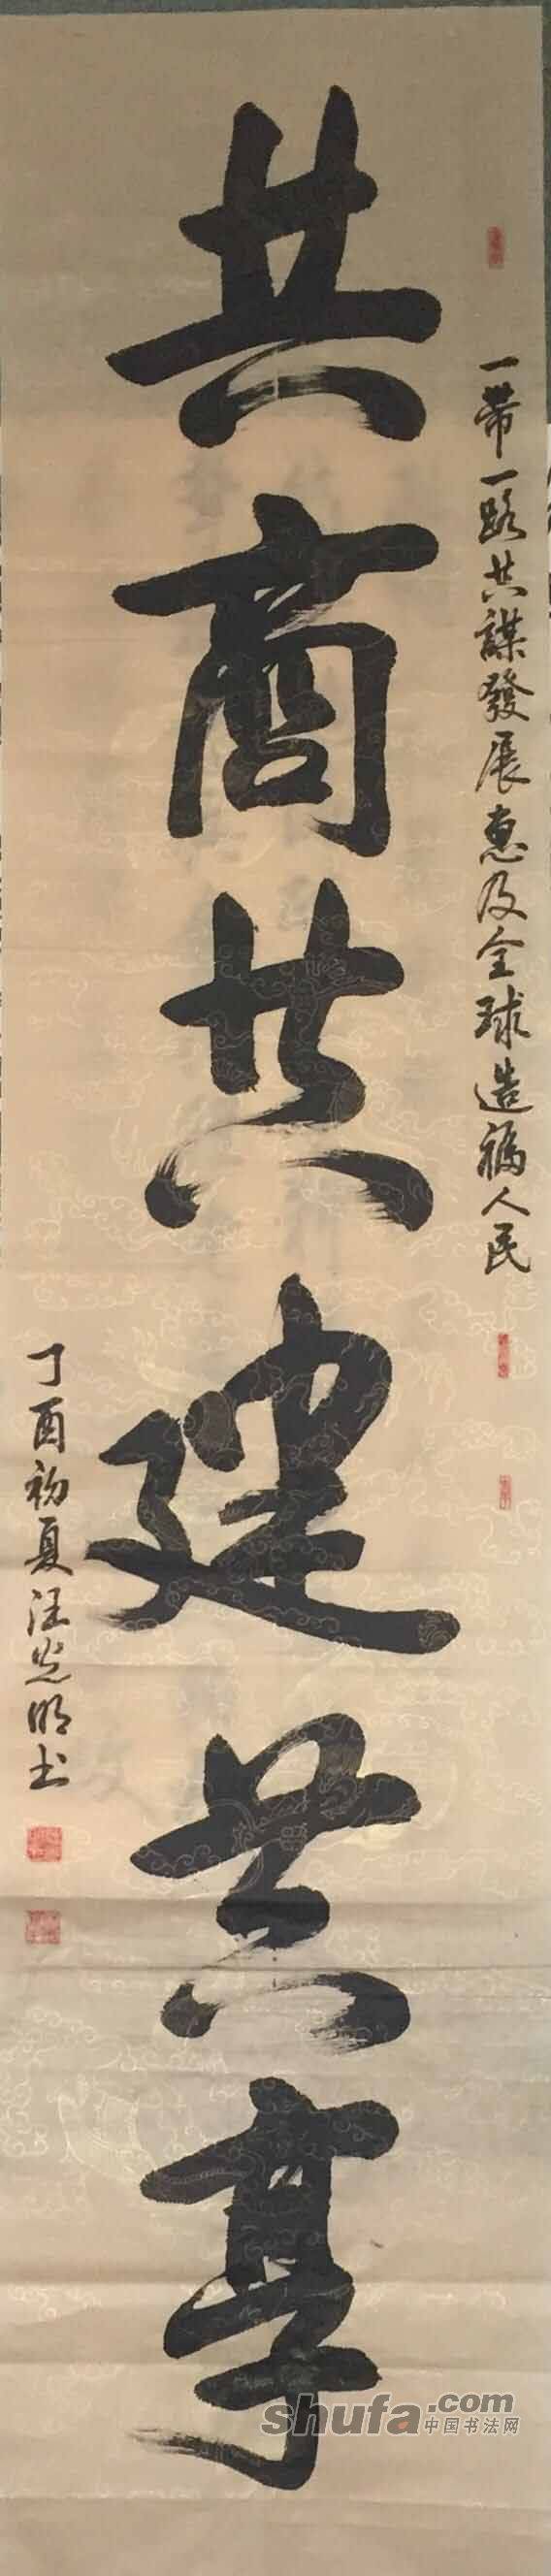 一带一路共謀發展惠及全球造福人民
共商共建共享
丁酉初夏汪光明书
shufa.com
中国书法网